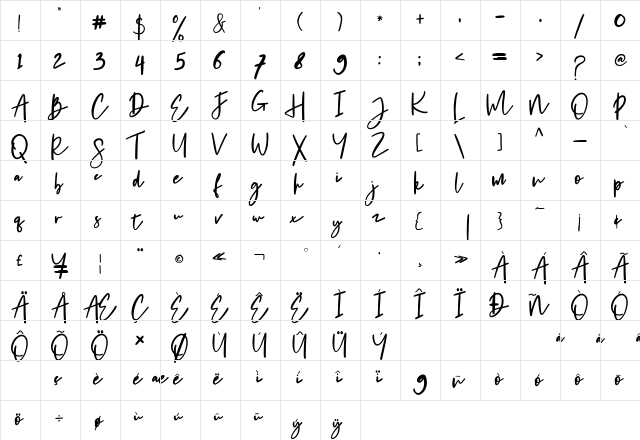 ! " # $ % & ' ( ) * + , - . / 0
1 2 3 4 5 6 7 8 9 : ; < = > ?
A B C D E F G H I J K L M N O P
Q R S T U V W X Y Z [ \ ] ^ _ `
a b c d e f g h i j k l m n o p
q r s t u v w x y z { | } ~ ¡ ¢
£ ¥ ¦ ¨ © « ¬ ° ´ · ¸ » À Á Â Ã
Ä Å Æ Ç È É Ê Ë Ì Í Î Ï Ð Ñ Ò Ó
Ô Õ Ö × Ø Ù Ú Û Ü Ý à á â
ç è é æ ê ë ì í î ï 9 ñ ò ó ô õ
ö ÷ ø ù ú û ü ý ÿ